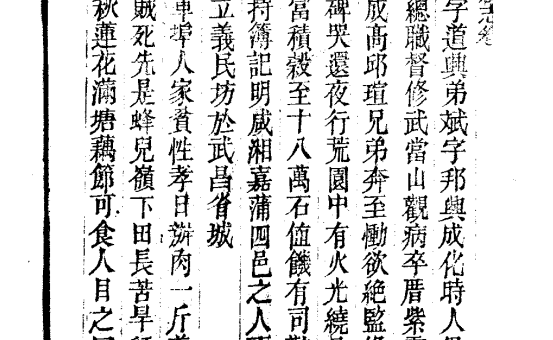 字道興弟斌字邦興成化時人
總職督修武當山觀病卒厝紫
成高邱瑄兄弟奔至慟欲絶監
碑哭還夜行荒園中有火光繞
富積穀至十八萬石值饑有司勸
持簿記明咸湘嘉蒲四邑之人
立義民坊於武昌省城
車埠人家貧性孝日辦肉一斤
賊死先是蜂兒嶺下田長苦旱
秋蓮花滿塘藕節可食人目之